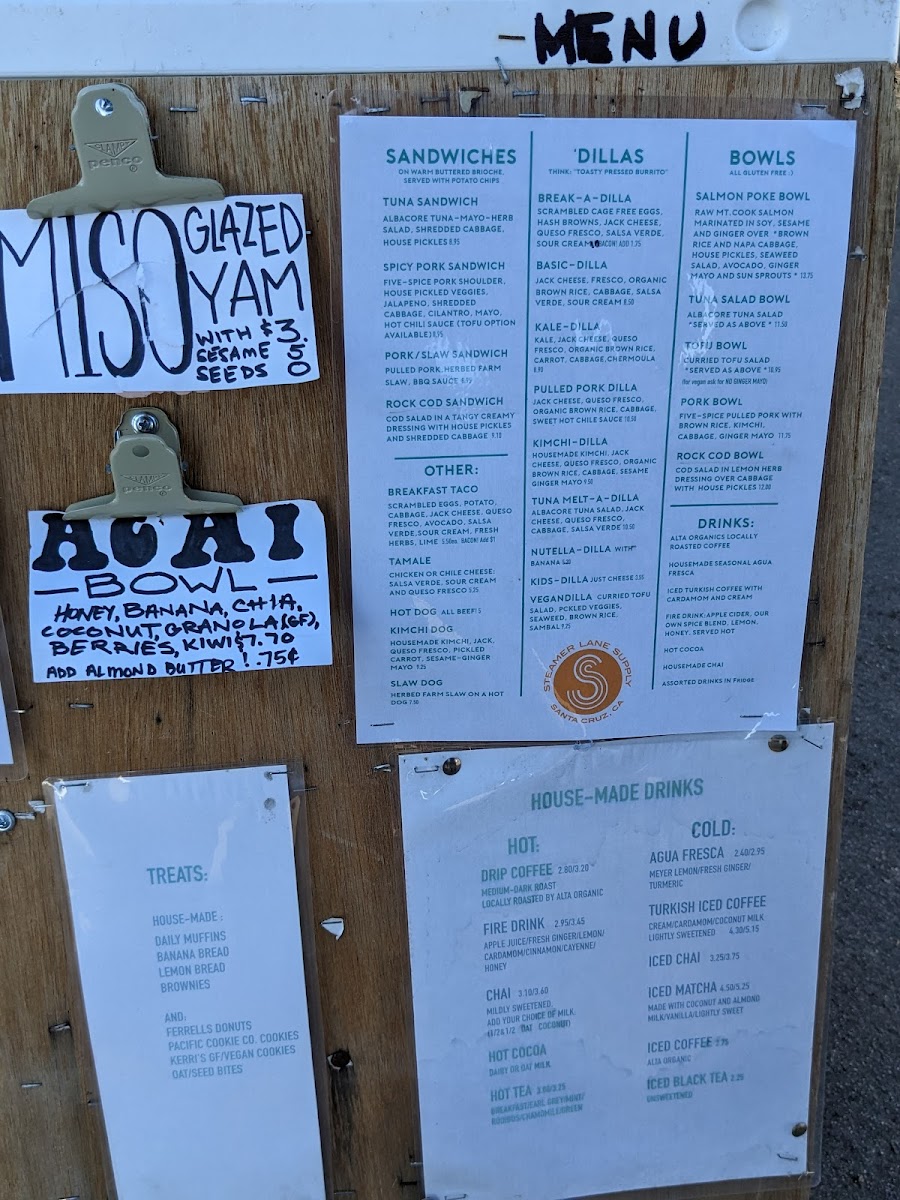 - MENU
CLAMPS
penco
®
MISO
GLAZED
YAM
WITH
SESAME
SEEDS
$3.50
penco
ACAI
- BOWL -
HONEY, BANANA, CHIA,
COCONUT, GRANOLA (GF),
BERRIES, KIWI $7.70
ADD ALMOND BUTTER! .75¢
SANDWICHES
ON WARM BUTTERED BRIOCHE,
SERVED WITH POTATO CHIPS
TUNA SANDWICH
ALBACORE TUNA-MAYO-HERB
SALAD, SHREDDED CABBAGE,
HOUSE PICKLES 8.95
SPICY PORK SANDWICH
FIVE-SPICE PORK SHOULDER,
HOUSE PICKLED VEGGIES,
JALAPENO, SHREDDED
CABBAGE, CILANTRO, MAYO,
HOT CHILI SAUCE (TOFU OPTION
AVAILABLE)
PORK/SLAW SANDWICH
PULLED PORK, HERBED FARM
SLAW, BBQ SAUCE
ROCK COD SANDWICH
COD SALAD IN A TANGY CREAMY
DRESSING WITH HOUSE PICKLES
AND SHREDDED CABBAGE 9.10
OTHER:
BREAKFAST TACO
SCRAMBLED EGGS, POTATO,
CABBAGE, JACK CHEESE, QUESO
FRESCO, AVOCADO, SALSA
VERDE, SOUR CREAM, FRESH
HERBS, LIME 5.50ea. BACON! Add $1
TAMALE
CHICKEN OR CHILE CHEESE:
SALSA VERDE, SOUR CREAM
AND QUESO FRESCO 5.25
HOT DOG ALL BEEF! 5
KIMCHI DOG
HOUSEMADE KIMCHI, JACK,
QUESO FRESCO, PICKLED
CARROT, SESAME-GINGER
MAYO 7.25
SLAW DOG
HERBED FARM SLAW ON A HOT
DOG 7.50
'DILLAS
THINK: "TOASTY PRESSED BURRITO"
BREAK-A-DILLA
SCRAMBLED CAGE FREE EGGS,
HASH BROWNS, JACK CHEESE,
QUESO FRESCO, SALSA VERDE,
SOUR CREAM BACON! ADD 1.75
BASIC-DILLA
JACK CHEESE, FRESCO, ORGANIC
BROWN RICE, CABBAGE, SALSA
VERDE, SOUR CREAM 8.50
KALE-DILLA
KALE, JACK CHEESE, QUESO
FRESCO, ORGANIC BROWN RICE,
CARROT, CABBAGE, CHERMOULA
PULLED PORK DILLA
JACK CHEESE, QUESO FRESCO,
ORGANIC BROWN RICE, CABBAGE,
SWEET HOT CHILE SAUCE 10.50
KIMCHI-DILLA
HOUSEMADE KIMCHI, JACK
CHEESE, QUESO FRESCO, ORGANIC
BROWN RICE, CABBAGE, SESAME
GINGER MAYO 9.50
TUNA MELT-A-DILLA
ALBACORE TUNA SALAD, JACK
CHEESE, QUESO FRESCO,
CABBAGE, SALSA VERDE 10.50
NUTELLA-DILLA WITH
BANANA
KIDS-DILLA JUST CHEESE 5.50
VEGANDILLA CURRIED TOFU
SALAD, PCKLED VEGGIES,
SEAWEED, BROWN RICE,
SAMBAL 9.25
STEAMER LANE SUPPLY
S
SANTA CRUZ, CA
BOWLS
ALL GLUTEN FREE :)
SALMON POKE BOWL
RAW MT. COOK SALMON
MARINATED IN SOY, SESAME
AND GINGER OVER *BROWN
RICE AND NAPA CABBAGE,
HOUSE PICKLES, SEAWEED
SALAD, AVOCADO, GINGER
MAYO AND SUN SPROUTS * 13.75
TUNA SALAD BOWL
ALBACORE TUNA SALAD
*SERVED AS ABOVE * 11.50
TOFU BOWL
CURRIED TOFU SALAD
*SERVED AS ABOVE * 10.95
(for vegan ask for NO GINGER MAYO)
PORK BOWL
FIVE-SPICE PULLED PORK WITH
BROWN RICE, KIMCHI,
CABBAGE, GINGER MAYO 11.75
ROCK COD BOWL
COD SALAD IN LEMON HERB
DRESSING OVER CABBAGE
WITH HOUSE PICKLES 12.00
DRINKS:
ALTA ORGANICS LOCALLY
ROASTED COFFEE
HOUSEMADE SEASONAL AGUA
FRESCA
ICED TURKISH COFFEE WITH
CARDAMOM AND CREAM
FIRE DRINK-APPLE CIDER, OUR
OWN SPICE BLEND, LEMON,
HONEY, SERVED HOT
HOT COCOA
HOUSEMADE CHAI
ASSORTED DRINKS IN FRIDGE
TREATS:
HOUSE-MADE:
DAILY MUFFINS
BANANA BREAD
LEMON BREAD
BROWNIES
AND:
FERRELLS DONUTS
PACIFIC COOKIE CO. COOKIES
KERRI'S GF/VEGAN COOKIES
OAT/SEED BITES
HOUSE-MADE DRINKS
HOT:
DRIP COFFEE 2.80/3.20
MEDIUM-DARK ROAST
LOCALLY ROASTED BY ALTA ORGANIC
FIRE DRINK 2.95/3.45
APPLE JUICE/FRESH GINGER/LEMON/
CARDAMOM/CINNAMON/CAYENNE/
HONEY
CHAI 3.10/3.60
MILDLY SWEETENED,
ADD YOUR CHOICE OF MILK.
OAT COCONUT)
HOT COCOA
DAIRY OR OAT MILK
HOT TEA 3.00/3.25
BREAKFAST/EARL GREY/MINT/
ROOIBOS/CHAMOMILE/GREEN
COLD:
AGUA FRESCA 2.40/2.95
MEYER LEMON/FRESH GINGER/
TURMERIC
TURKISH ICED COFFEE
CREAM/CARDAMOM/COCONUT MILK
LIGHTLY SWEETENED 4.30/5.15
ICED CHAI 3.25/3.75
ICED MATCHA 4.50/5.25
MADE WITH COCONUT AND ALMOND
MILK/VANILLA/LIGHTLY SWEET
ICED COFFEE
ALTA ORGANIC
ICED BLACK TEA 2.25
UNSWEETENED